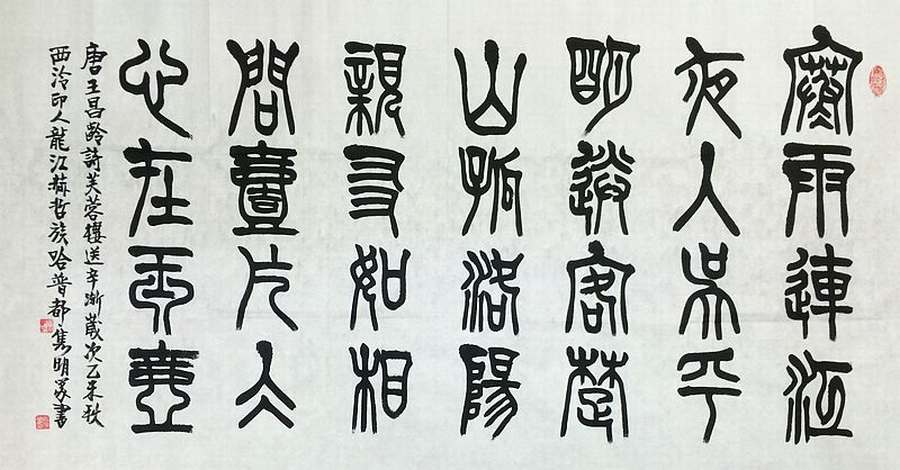 寒雨連江
夜入吳平
明送客楚
山孤洛陽
親友如相
問壹片冰
心在玉壺
唐王昌齡詩芙蓉樓送辛漸歲次乙未秋
西泠印人龍江赫哲族哈普都雋明篆書